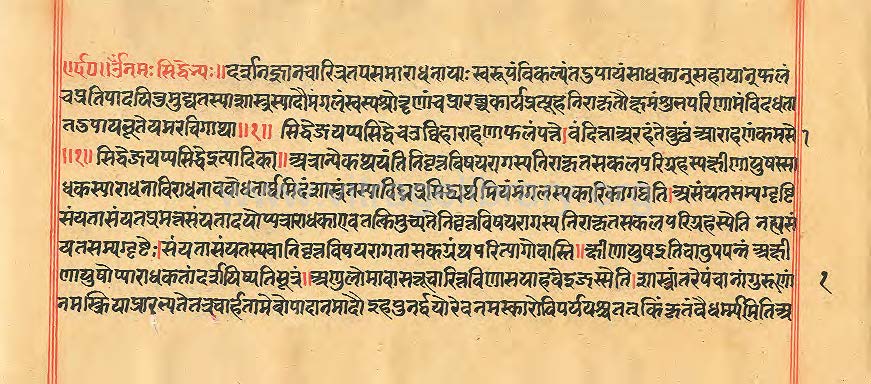 ॥र्द०॥ॐनमः सिद्धेभ्यः॥ दर्शनज्ञानचारित्रतपसमाराधनायाः स्वरूपं विकल्पं तउपायं साधकान् सहायान् फलं
च प्रतिपादयितुमुद्यतस्यास्य शास्त्रस्यादौ मंगलं स्वस्य श्रोतॄणां च प्रारब्धकार्यप्रत्यूहनिराकृतौ क्षमं शुभपरिणामं विदधता
तउपायभूतेयमरचि गाथा॥१॥ सिद्धे जयप्पसिद्धे चउव्विहाराहणाफलं पत्ते। वंदित्ता अरहंते वुच्छं आराहणं कमसो
॥१॥ सिद्धे जयप्पसिद्धे इत्यादिका॥ अत्रान्ये कथयंति निवृत्तविषयरागस्य निराकृतसकलपरिग्रहस्य क्षीणायुषस्सा
धकस्याराधनाविराधनावबोधनार्थमिदं शास्त्रं तस्याविघ्नप्रसिद्ध्यर्थमियं मंगलस्य कारिका गाथेति। असंयतसम्यग्दृष्टि
संयतासंयतप्रमत्तसंयतादयोप्यत्राराधका एव तत्किमुच्यते निवृत्तविषयरागस्य निराकृतसकलपरिग्रहस्येति नह्यसं
यतसम्यग्दृष्टेः संयतासंयतस्य वा निवृत्तविषयरागता सकग्रंथपरित्यागो वास्ति॥ क्षीणायुष इति चानुपपन्नं अक्षी
णायुषोप्याराधकतां दर्शयिष्यति सूत्रं॥ अणुलोमा वा सत्तू चारित्तविणासया हवे जस्सेति। शास्त्रांतरे पंचानां गुरूणां
नमस्क्रिया प्रारभ्यते तत्र चार्हतामेवोपादानमादौ इह पुनर्द्वयोरेव नमस्कारो विपर्ययश्च तत किं कृतं वैधर्म्यमिति अ
१